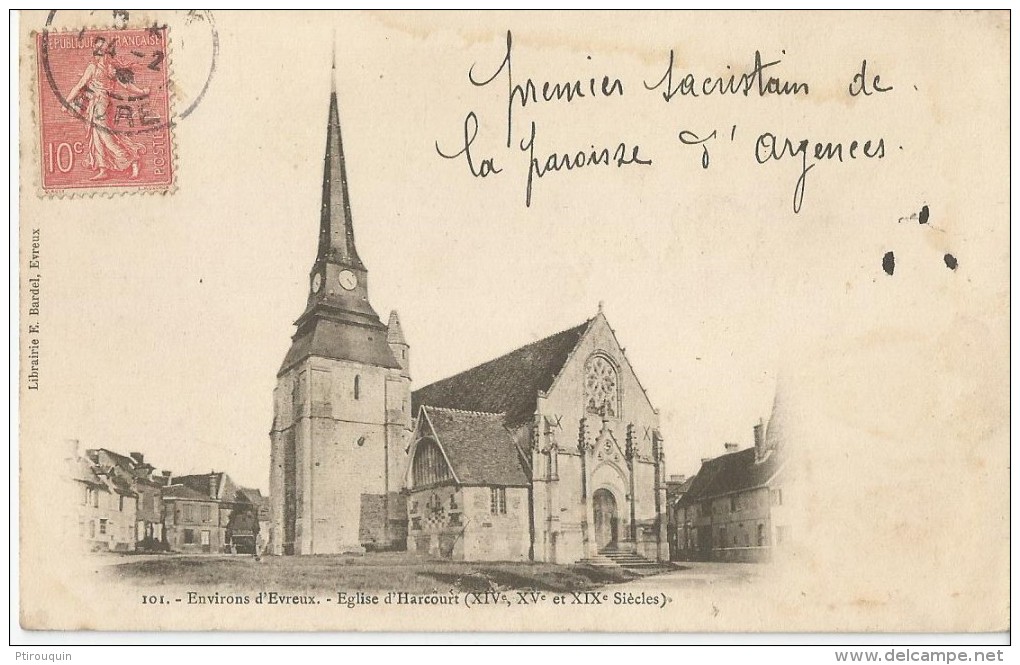 RÉPUBLIQUE FRANÇAISE
24 -2
EURE
10c
POSTES
premier sacristain de
la paroisse d'Argences.
Librairie E. Bardel, Evreux
101. - Environs d'Evreux. - Eglise d'Harcourt (XIVe, XVe et XIXe Siècles)
Ptirouquin
www.delcampe.net